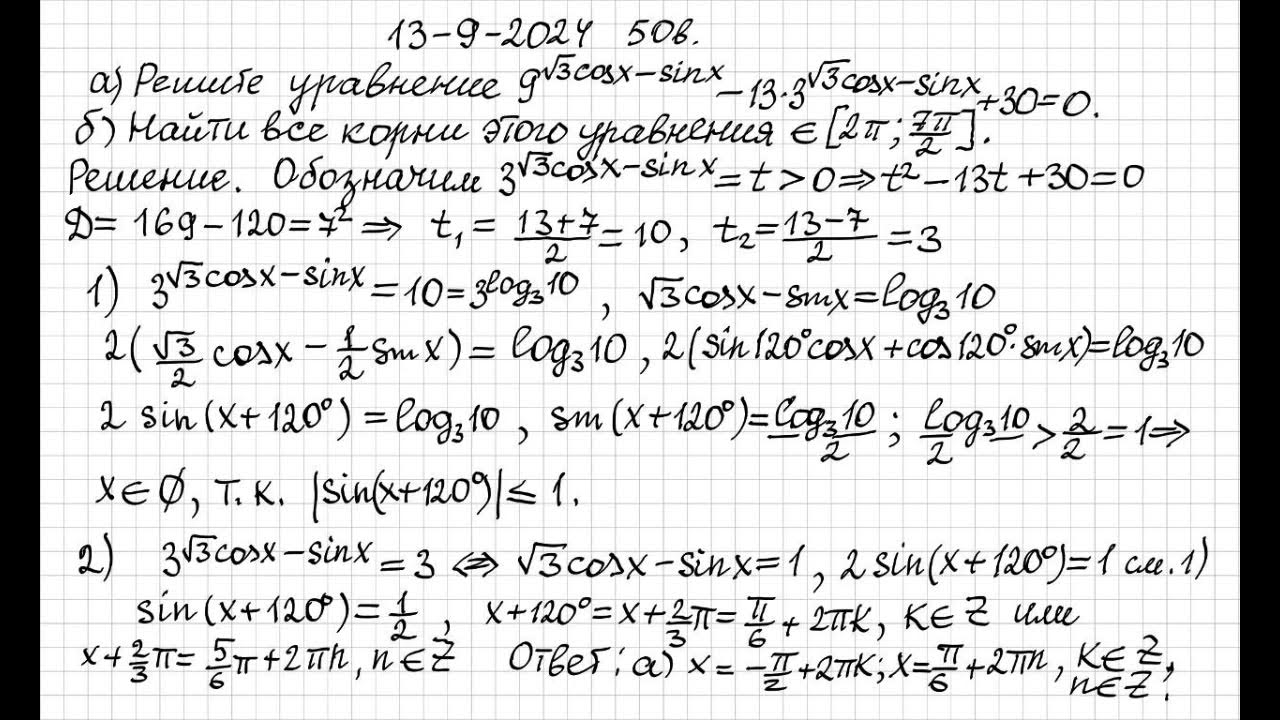 13-9-2024 50в.
а) Решите уравнение 9^(√3cosx-sinx) - 13·3^(√3cosx-sinx) + 30 = 0.
б) Найти все корни этого уравнения ∈ [2π; 7π/2].
Решение. Обозначим 3^(√3cosx-sinx) = t > 0 ⇒ t² - 13t + 30 = 0
Д = 169 - 120 = 7² ⇒ t₁ = (13+7)/2 = 10, t₂ = (13-7)/2 = 3
1) 3^(√3cosx-sinx) = 10 = 3^(log₃10), √3cosx - sinx = log₃10
2(√3/2 cosx - 1/2 sinx) = log₃10, 2(sin120°cosx + cos120°·sinx) = log₃10
2 sin(x+120°) = log₃10, sin(x+120°) = log₃10/2; log₃10/2 > 2/2 = 1 ⇒
x ∈ ∅, т.к. |sin(x+120°)| ≤ 1.
2) 3^(√3cosx-sinx) = 3 ⇔ √3cosx - sinx = 1, 2 sin(x+120°) = 1 см. 1)
sin(x+120°) = 1/2, x+120° = x + 2/3 π = π/6 + 2πk, k ∈ Z или
x + 2/3 π = 5/6 π + 2πn, n ∈ Z Ответ: а) x = -π/2 + 2πk; x = π/6 + 2πn, k ∈ Z, n ∈ Z;